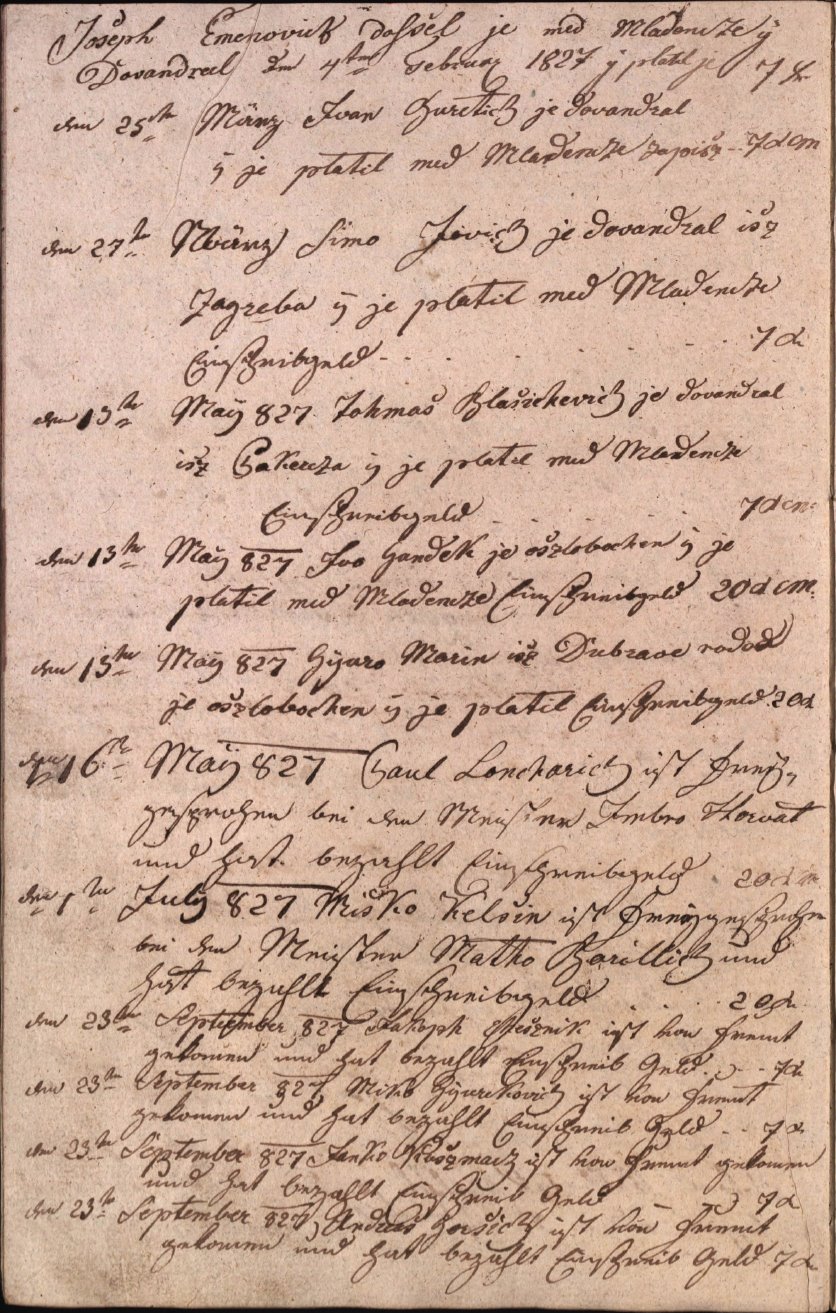 Joseph Emenovich dosßel je med Mladencze ÿ
Dovandral den 4ten Februar 1827 ÿ platil je 7 x
den 25ten März Ivan Juretich je dovandral
ÿ je platil med Mladencze zapisz - 7 x cm
den 27ten März Simo Jovich je dovandral isz
Zagreba ÿ je platil med Mladencze
Einschreibgeld - - 7 x
den 13ten Maÿ 827 Tohmas Blasichevich je dovandral
isz Chakercza ÿ je platil med Mladencze
Einschreibgeld 7 x cm
den 13ten Maÿ 827 Ivo Handek je oszlobochen ÿ je
platil med Mladencze Einschreibgeld 20 x cm
den 13ten Maÿ 827 Gyuro Marin isz Dubrave rodod
je oszlobochen ÿ je platil Einschreibgeld 20 x
den 16ten Maÿ 827 Paul Loncharich ist Freÿ-
gesprohen bei den Meister Imbro Horvat
und hat bezahlt Einschreibgeld 20 x
den 1ten July 827 Misko Kelsin ist Freÿgesprohen
bei den Meister Matko Barillich und
hat bezahlt Einschreibgeld 20 x
den 23ten September 827 ist von Fremt
gekomen und hat bezahlt Einschreib Geld - - 7 x
den 23ten September 827 Miko Gyurekovich ist von Fremt
gekomen und hat bezahlt Einschreib Geld - - 7 x
den 23ten September 827 Janko ist von Fremt gekomen
und hat bezahlt Einschreib Geld 7 x
den 23ten September 827 Andras ist von Fremt
gekomen und hat bezahlt Einschreib Geld 7 x